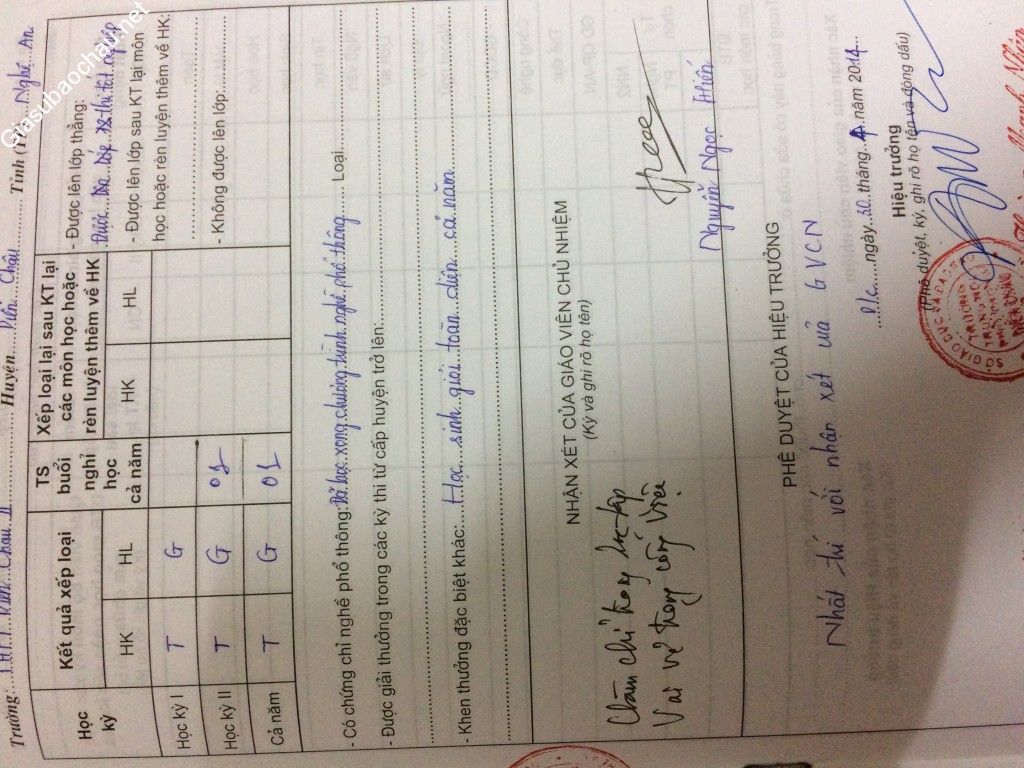 Giasubaochau.net
Trường: T.H.P.T Diễn Châu II Huyện Diễn Châu Tỉnh (TP) Nghệ An
Học kỳ
Kết quả xếp loại
TS buổi nghỉ học cả năm
Xếp loại lại sau KT lại các môn học hoặc rèn luyện thêm về HK
HK HL HK HL
Học kỳ I T G
Học kỳ II T G 01
Cả năm T G 01
- Được lên lớp thẳng:
- Được lên lớp sau KT lại môn
học hoặc rèn luyện thêm về HK:
- Không được lên lớp:
- Có chứng chỉ nghề phổ thông: Đã học xong chương trình nghề phổ thông Loại
- Được giải thưởng trong các kỳ thi từ cấp huyện trở lên:
- Khen thưởng đặc biệt khác: Học sinh giỏi toàn diện cả năm
NHẬN XÉT CỦA GIÁO VIÊN CHỦ NHIỆM
(Ký và ghi rõ họ tên)
Chăm chỉ trong học tập
Vai vẻ trong công việc
Nguyễn Ngọc Hiến
PHÊ DUYỆT CỦA HIỆU TRƯỞNG
Nhất trí với nhận xét của GVCN
D/c ngày 20 tháng năm 2014
Hiệu trưởng
(Phê duyệt, ký, ghi rõ họ tên và đóng dấu)